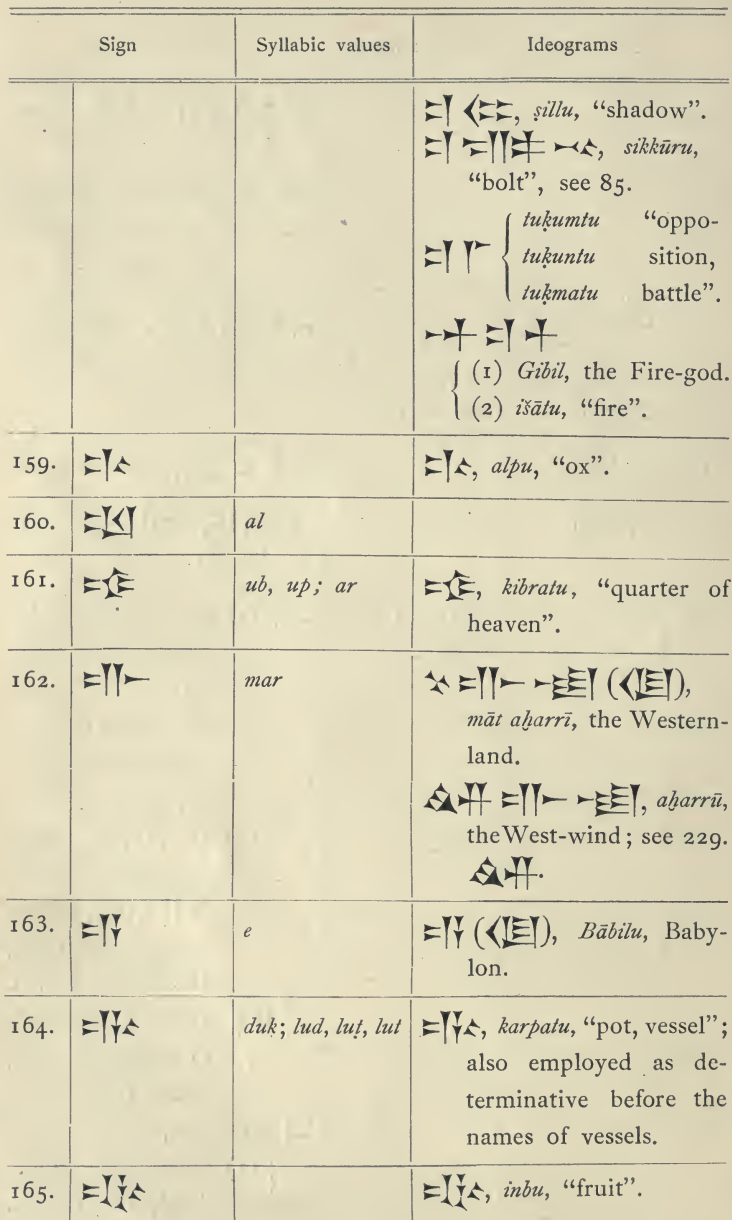 Sign Syllabic values Ideograms
𒄑 𒈪, ṣillu, “shadow”.
𒄑 𒊕 𒆰, sikkūru,
“bolt”, see 85.
tuḳumtu “oppo-
𒄑 𒇲 tuḳuntu sition,
tuḳmatu battle”.
𒀭 𒄑 𒁇
(1) Gibil, the Fire-god.
(2) išātu, “fire”.
159. 𒄞 𒄞, alpu, “ox”.
160. 𒀠 al
161. 𒌒 ub, up; ar 𒌒, kibratu, “quarter of
heaven”.
162. 𒈥 mar 𒆳 𒈥 𒌅 (𒆠),
māt aḫarrī, the Western-
land.
𒅎 𒈥 𒌅, aḫarrū,
the West-wind; see 229.
𒅎.
163. 𒂊 e 𒂊 (𒆠), Bābilu, Baby-
lon.
164. 𒂁 duk; lud, luṭ, lut 𒂁, karpatu, “pot, vessel”;
also employed as de-
terminative before the
names of vessels.
165. 𒄧 𒄧, inbu, “fruit”.